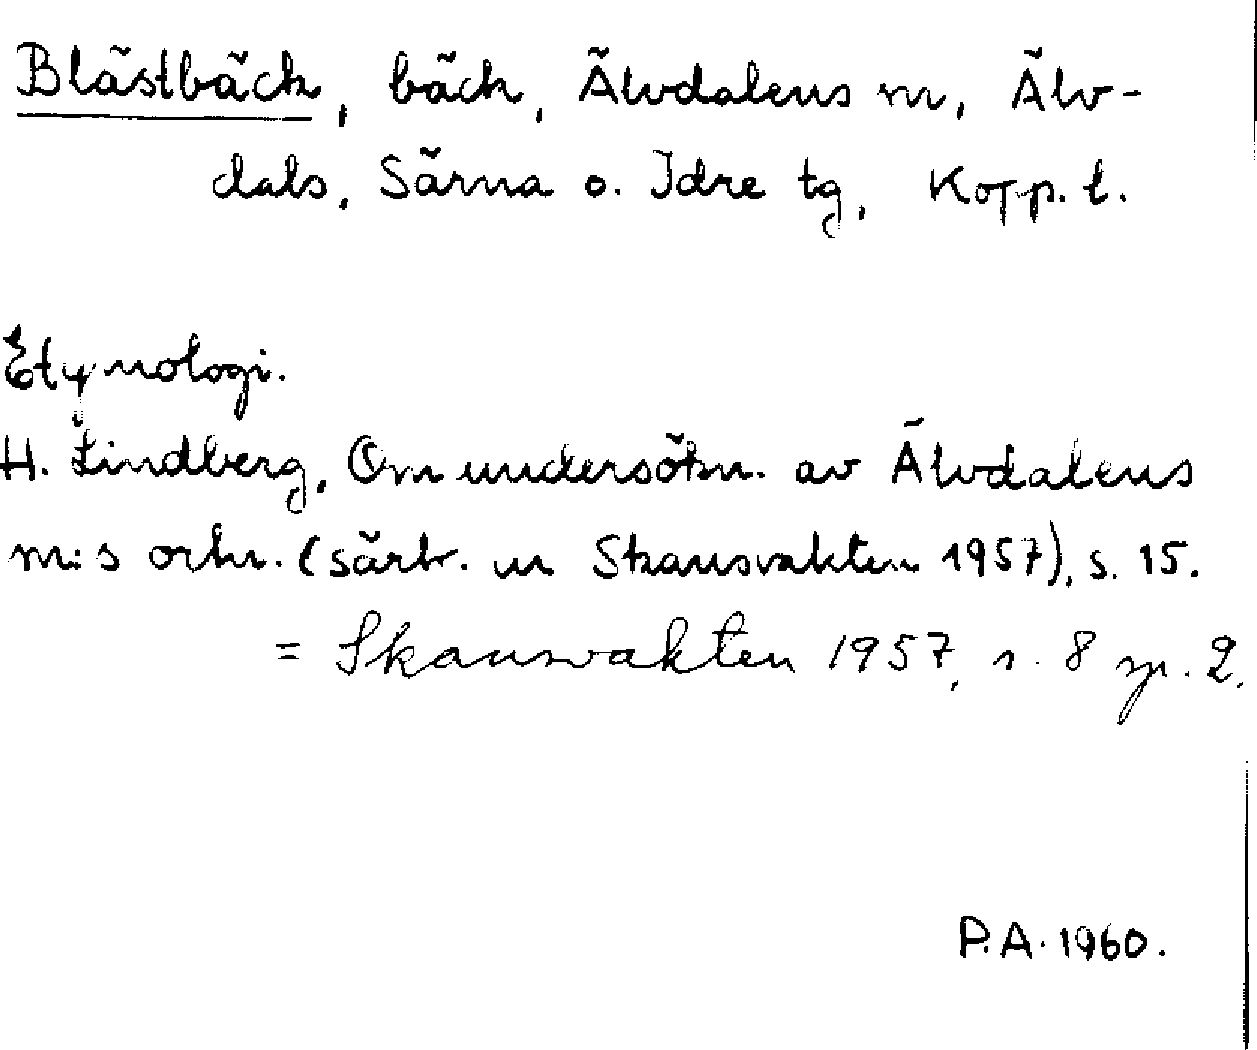 Blästbäck, bäck, Älvdalens sn, Älv-
dals, Särna o. Idre tg, Kopp. l.
Etymologi.
H. Lindberg, Om undersökn. av Älvdalens
sn:s ortn. (särtr. ur Skansvakten 1957), s. 15.
= Skansvakten 1957, s. 8 sp. 2.
P.A. 1960.